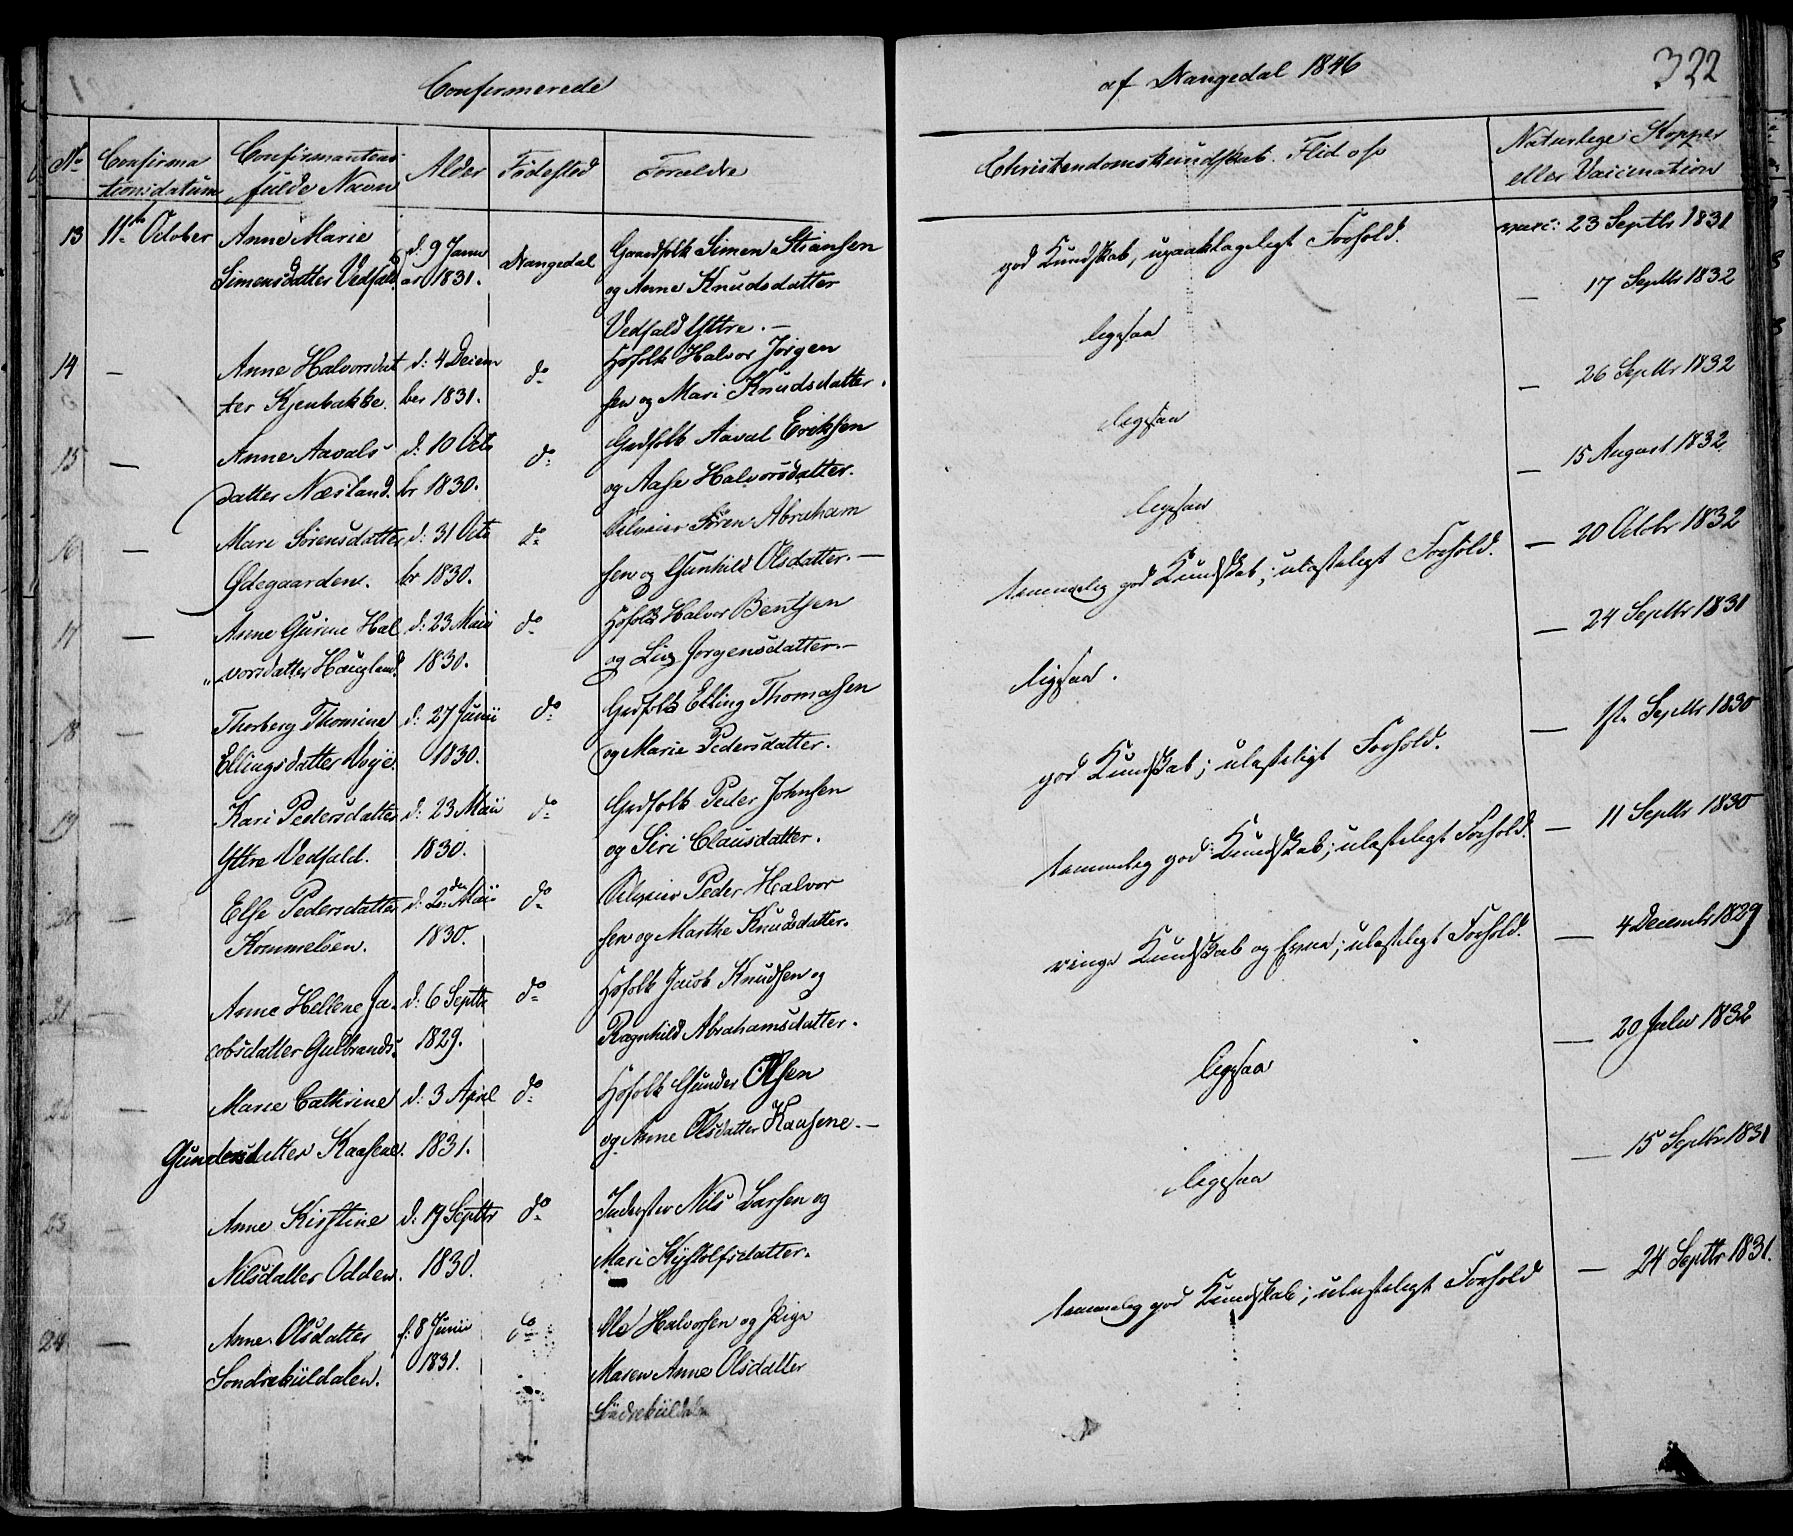 Confirmerede
af Nangedal 1846
322
No
Confirma
tionsdatum
Confirmantens
fulde Navn
Alder
Fødested
Forældre
Christendomskundskab. Flid osv
Naturlige Kopper
eller Vaccination
13 11te October Anne Marie
Simensdatter Vedfald
d. 9 Janu
ar 1831.
Nangedal
Gaardfolk Simen Stiansen
og Anne Knudsdatter
Vedfald Yttre. —
god Kundskab, upaaklageligt Forhold.
vacc: 23 Septbr 1831
14 — Anne Halvorsdat
ter Kjenbakke.
d: 4 Decem
ber 1831.
do
Hsfolk Halvor Jørgen
sen og Mari Knudsdatter.
ligesaa
— 17 Septbr 1832
15 — Anne Aavals
datter Næsland.
d: 10 Octo
br 1830.
do
Grdfolk Aaval Eriksen
og Aase Halvorsdatter.
ligesaa
— 26 Septbr 1832
16 — Mari Sørensdatter
Ødegaarden.
d: 31 Octo
br 1830.
do
Søren Abraham
sen og Gunhild Olsdatter. —
ligesaa
— 15 August 1832
17 — Anne Gurine Hal
vorsdatter Haugland.
d: 23 Maii
1830.
do
Hsfolk Halvor Bentsen
og Liv Jørgensdatter. —
temmelig god Kundskab; ulasteligt Forhold.
— 20 Octobr 1832
18 — Thorberg Thomine
Ellingsdatter Voje.
d: 27 Junii
1830.
do
Grdfolk Elling Thomasen
og Marie Pedersdatter.
ligesaa.
— 24 Septbr 1831
19 — Kari Pedersdatter
Yttre Vedfald.
d: 23 Maii
1830.
do
Grdfolk Peder Johnsen
og Siri Clausdatter.
god Kundskab; ulasteligt Forhold.
— 1ste Septbr 1830
20 — Else Pedersdatter
Kommeløen.
d: 2den Maii
1830.
do
Peder Halvor
sen og Marthe Knudsdatter.
temmelig god Kundskab; ulasteligt Forhold.
— 11 Septbr 1830
21 — Anne Hellene Ja
cobsdatter Gulbrands.
d: 6 Septbr
1829.
do
Hsfolk Jacob Knudsen og
Ragnhild Abrahamsdatter.
ringe Kundskab og Evne; ulasteligt Forhold.
— 4 Decembr 1829
22 — Marie Cathrine
Gundersdatter Kaasene.
d: 3 April
1831.
do
Hsfolk Gunder Olsen
og Anne Olsdatter Kaasene. —
ligesaa
— 20 Juli 1832
23 — Anne Kirstine
Nilsdatter Odden.
d: 19 Septbr
1830.
do
Inderster Nils Larsen og
Mari Kjøstolfsdatter.
ligesaa
— 15 Septbr 1831
24 — Anne Olsdatter
Sondrekiildalen.
f: 8 Junii
1831.
do
Ole Halvorsen og Pige
Maren Anne Olsdatter
temmelig god Kundskab; ulasteligt Forhold
— 24 Septbr 1831.